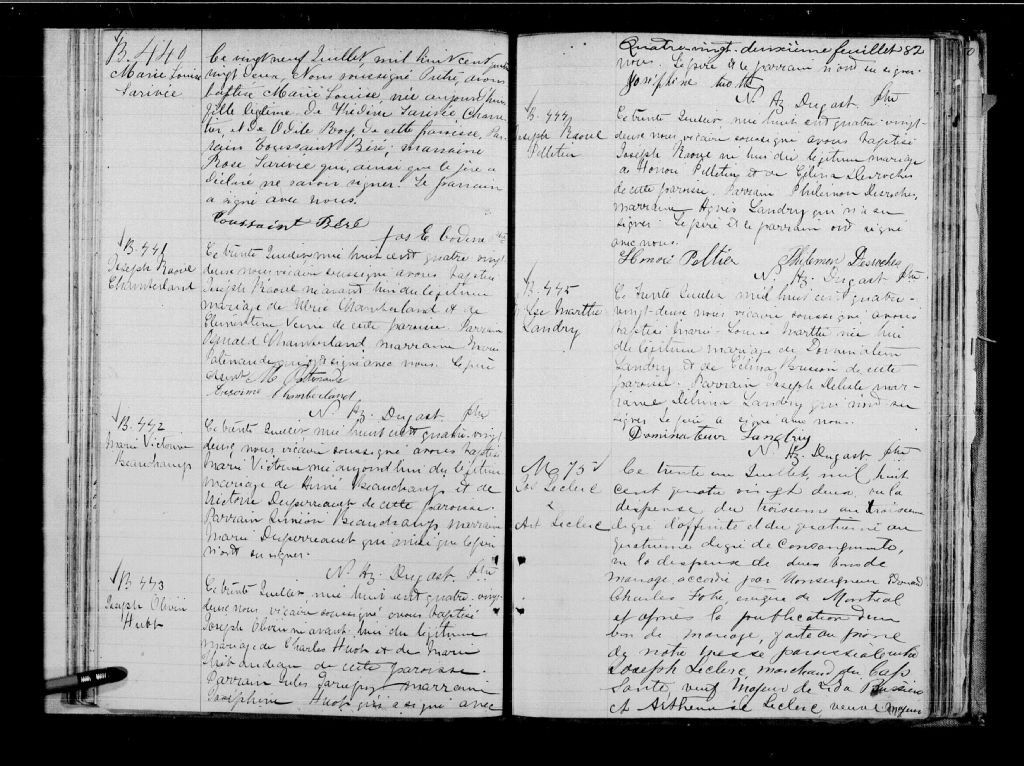 B. 440
Marie Louise
Larivée
Ce vingt neuf Juillet, mil huit cent quatre
vingt deux, Nous soussigné Prêtre, avons
baptisé Marie Louise, née aujourd'hui
fille légitime de Thédime Larivée, Charre-
tier, et de Odile Roy, de cette paroisse. Par-
rain Toussaint Béré; marraine
Rose Larivée qui, ainsi que le père a
déclaré ne savoir signer. Le parrain
a signé avec nous.
Toussaint Béré
Jos E. ptre
B. 441
Joseph Raoul
Chamberland
Ce trente Juillet mil huit cent quatre vingt
deux nous vicaire soussigné avons baptisé
Joseph Raoul né avant hier du légitime
mariage de Ulric Chamberland et de
Clementine de cette paroisse. Parrain
Chamberland marraine Marie
qui ont signé avec nous. Le père
Chamberland
N. Hz. Dugast ptre
B. 442
Marie Victorine
Beauchamps
Ce trente Juillet mil huit cent quatre vingt
deux nous vicaire soussigné avons baptisé
Marie Victorine née aujourd'hui du légitime
mariage de Aimé Beauchamps et de
Victoire Duperreault de cette paroisse.
Parrain Siméon Beauchamps marraine
Marie Duperreault qui ainsi que le père
n'ont su signer.
N. Hz. Dugast ptre
B. 443
Joseph Olivier
Huot
Ce trente Juillet mil huit cent quatre-vingt
deux nous vicaire soussigné avons baptisé
Joseph Olivier né avant hier du légitime
mariage de Charles Huot et de Marie
de cette paroisse.
Parrain Jules marraine
Joséphine Huot qui a signé avec
Quatre-vingt-deuxième feuillet 82
nous. Le père et le parrain n'ont su signer
Joséphine Huot
N. Hz. Dugast ptre
B. 444
Joseph Raoul
Pelletier
Ce trente Juillet mil huit cent quatre vingt-
deux nous vicaire soussigné avons baptisé
Joseph Raoul né hier du légitime mariage
de Honoré Pelletier et de Célina Desroches
de cette paroisse. Parrain Philémon Desroches,
marraine Agnès Landry qui n'a su
signer. Le père et le parrain ont signé
avec nous.
Honoré Peltier Philemon Desroches
N. Hz. Dugast ptre
B. 445
M. Lse Marthe
Landry
Ce trente Juillet mil huit cent quatre-
vingt-deux nous vicaire soussigné avons
baptisé Marie-Louise Marthe née hier
du légitime mariage de
Landry et de Célina de cette
paroisse. Parrain Joseph mar-
raine Landry qui n'ont su
signer. Le père a signé avec nous.
Dominateur Landry
N. Hz. Dugast ptre
M 75
Jos Leclerc
&
Art Leclerc
Ce trente un Juillet, mil huit
cent quatre vingt deux, vu la
dispense du troisième au troisième
degré d'affinité et du quatrième au
quatrième degré de consanguinité,
vu la dispense de deux bans de
mariage, accordé par Monseigneur Edouard
Charles Fabre évêque de Montréal
et après la publication d'un
ban de mariage, faite au prône
de notre messe paroissiale entre
Joseph Leclerc, marchand du Cap
Santé, veuf majeur de
et Leclerc, veuve majeure